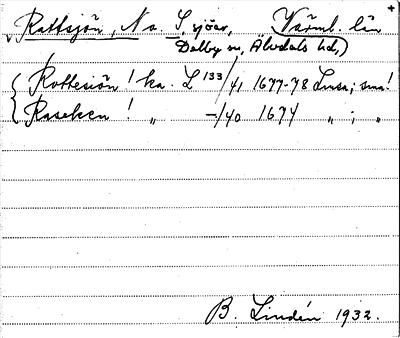 Rattsjön, N o. S sjöar, Värml. län
Dalby sn, Älvdals hd,
Rottesiön! ka. L 133/41 1677-78 Lmsa; sma!
Raseken! „ -/40 1674 „ ; !
B. Lindén 1932.